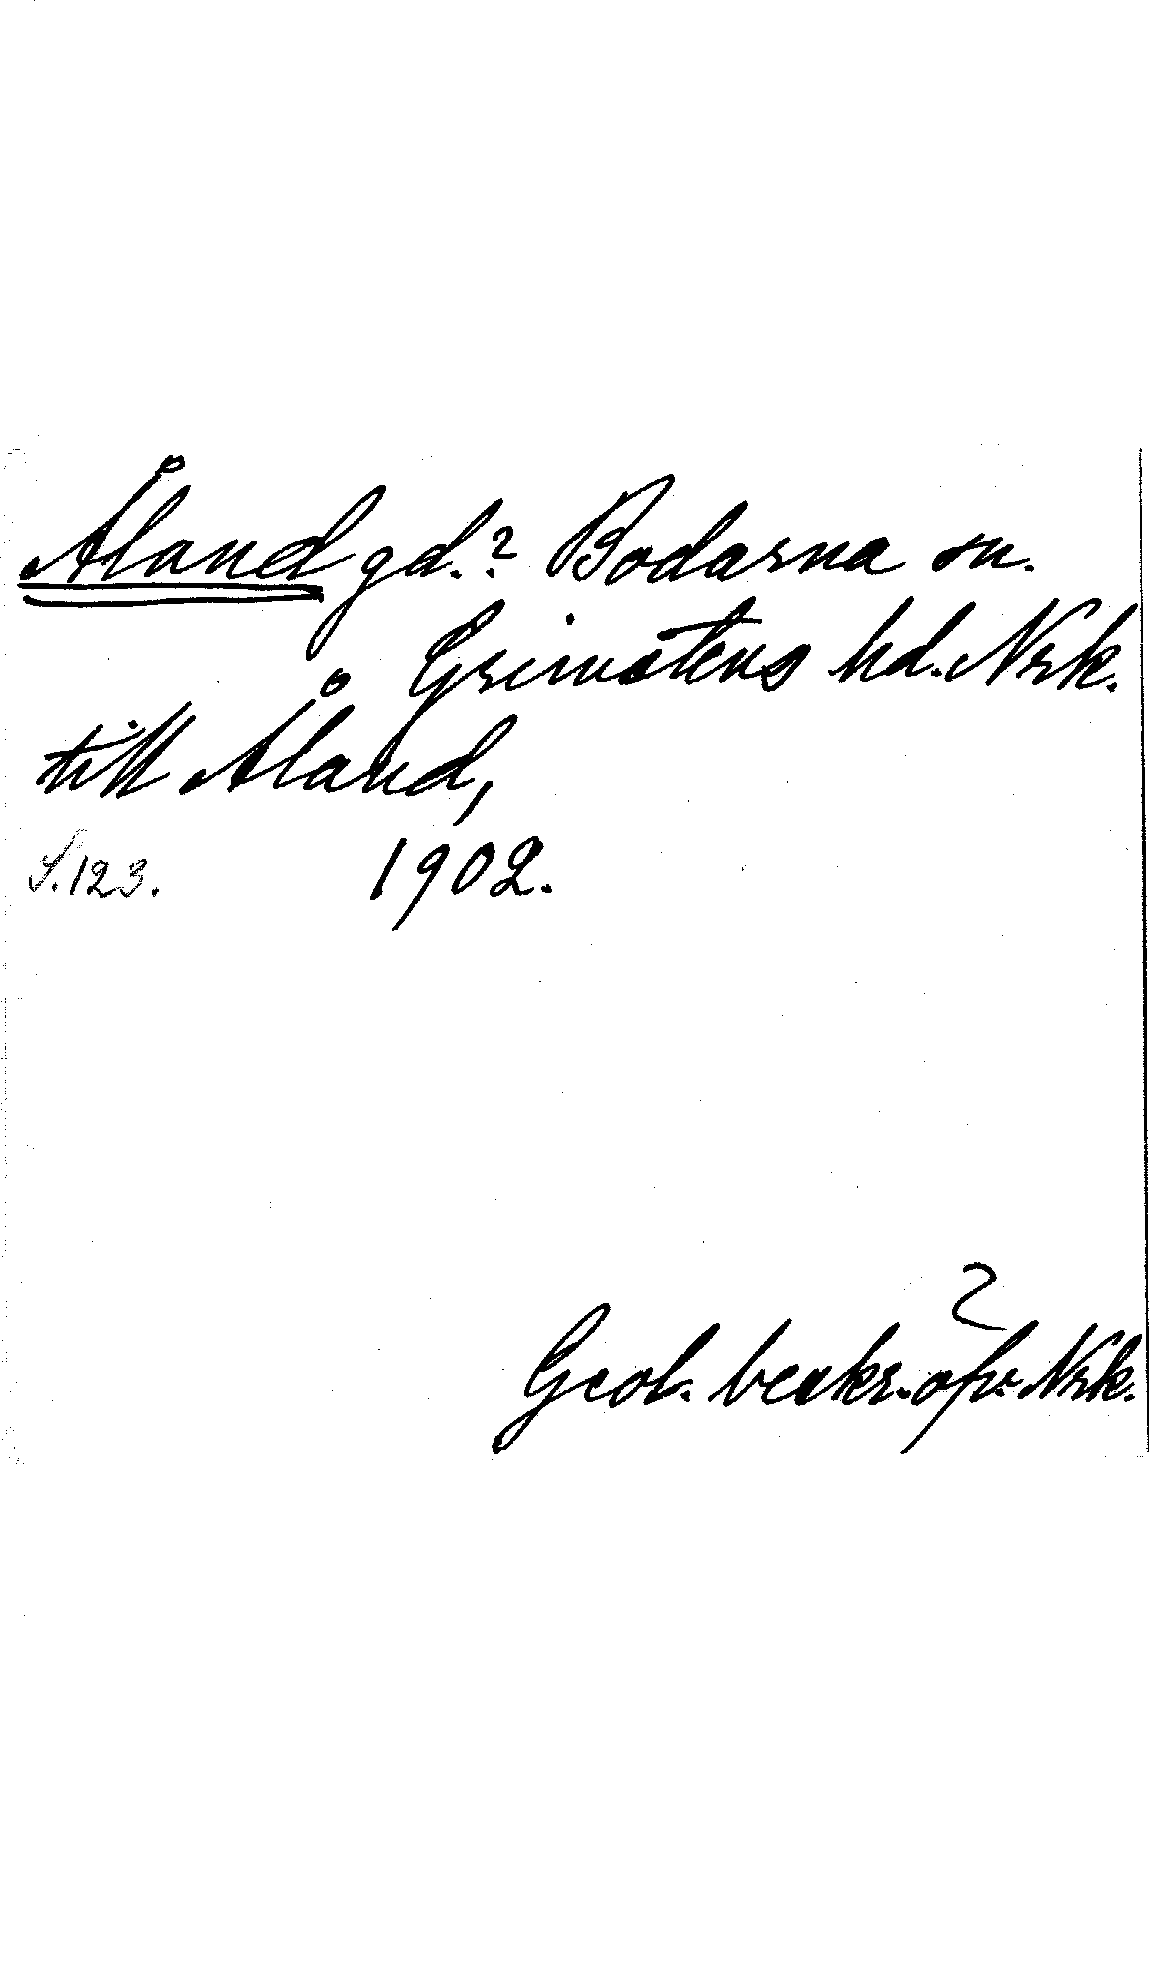 Åland gd.? Bodarna sn.
Grimstens hd. Nrk.
till Åland,
S. 123. 1902.
Geol. beskr. öfv. Nrk.